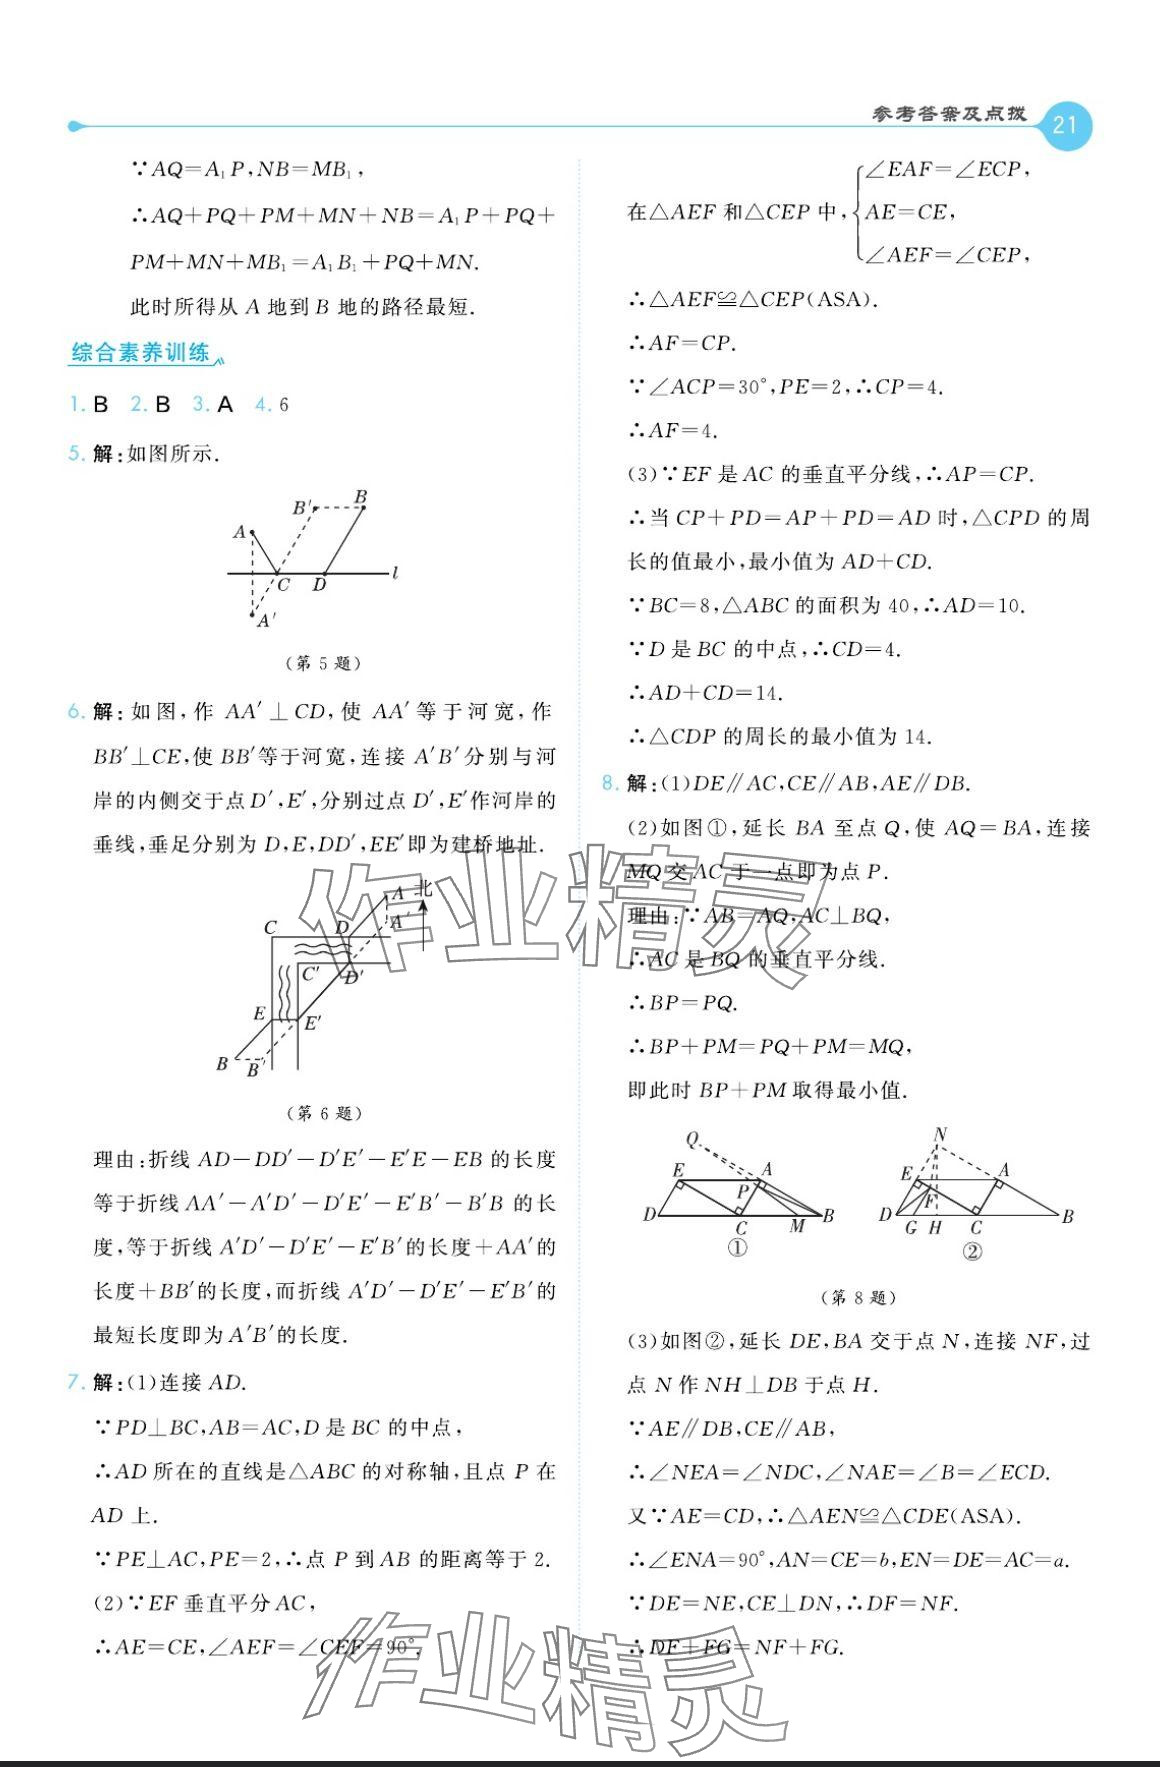 参考答案及点拨
21
∵AQ=A₁P,NB=MB₁,
∴AQ+PQ+PM+MN+NB=A₁P+PQ+
PM+MN+MB₁=A₁B₁+PQ+MN.
此时所得从 A 地到 B 地的路径最短.
综合素养训练
1. B 2. B 3. A 4. 6
5. 解:如图所示.
B′ B
A
C D l
A′
(第 5 题)
6. 解:如图,作 AA′⊥CD,使 AA′等于河宽,作
BB′⊥CE,使 BB′等于河宽,连接 A′B′分别与河
岸的内侧交于点D′,E′,分别过点 D′,E′作河岸的
垂线,垂足分别为 D,E,DD′,EE′即为建桥地址.
A 北
C D A′
C′ D′
E E′
B B′
(第 6 题)
理由:折线 AD-DD′-D′E′-E′E-EB 的长度
等于折线 AA′-A′D′-D′E′-E′B′-B′B 的长
度,等于折线 A′D′-D′E′-E′B′的长度+AA′的
长度+BB′的长度,而折线 A′D′-D′E′-E′B′的
最短长度即为A′B′的长度.
7. 解:(1)连接 AD.
∵PD⊥BC,AB=AC,D 是 BC 的中点,
∴AD 所在的直线是△ABC 的对称轴,且点 P 在
AD 上.
∵PE⊥AC,PE=2,∴点 P 到AB 的距离等于 2.
(2)∵EF 垂直平分AC,
∴AE=CE,∠AEF=∠CEF=90°.
∠EAF=∠ECP,
在△AEF 和△CEP 中, AE=CE,
∠AEF=∠CEP,
∴△AEF≌△CEP(ASA).
∴AF=CP.
∵∠ACP=30°,PE=2,∴CP=4.
∴AF=4.
(3)∵EF 是AC 的垂直平分线,∴AP=CP.
∴当 CP+PD=AP+PD=AD 时,△CPD 的周
长的值最小,最小值为 AD+CD.
∵BC=8,△ABC 的面积为 40,∴AD=10.
∵D 是 BC 的中点,∴CD=4.
∴AD+CD=14.
∴△CDP 的周长的最小值为 14.
8. 解:(1)DE∥AC,CE∥AB,AE∥DB.
(2)如图①,延长 BA 至点 Q,使 AQ=BA,连接
MQ 交AC 于一点即为点 P.
理由:∵AB=AQ,AC⊥BQ,
∴AC 是BQ 的垂直平分线.
∴BP=PQ.
∴BP+PM=PQ+PM=MQ,
即此时 BP+PM 取得最小值.
Q N
E A E A
P F
D C M B D G H C B
① ②
(第 8 题)
(3)如图②,延长 DE,BA 交于点 N,连接 NF,过
点 N 作 NH⊥DB 于点 H.
∵AE∥DB,CE∥AB,
∴∠NEA=∠NDC,∠NAE=∠B=∠ECD.
又∵AE=CD,∴△AEN≌△CDE(ASA).
∴∠ENA=90°,AN=CE=b,EN=DE=AC=a.
∵DE=NE,CE⊥DN,∴DF=NF.
∴DF+FG=NF+FG.
作业精灵
作业精灵